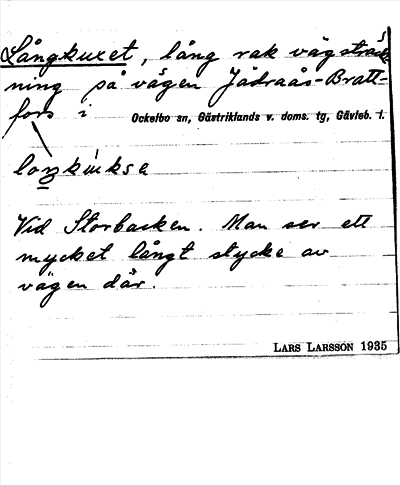 Långkuxet, lång rak vägsträck-
ning på vägen Jädraås-Bratt-
fors i Ockelbo sn, Gästriklands v. doms. tg, Gävleb. l.
Vid Storbacken. Man ser ett
mycket långt stycke av
vägen där.
LARS LARSSON 1935